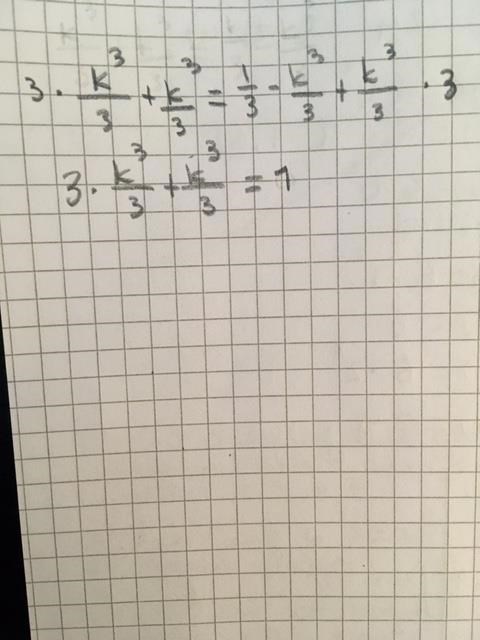 3 · k³/3 + k³/3 = 1/3 - k³/3 + k³/3 · 3
3 · k³/3 + k³/3 = 1